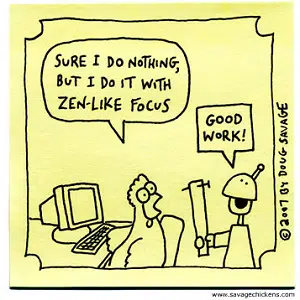 SURE I DO NOTHING,
BUT I DO IT WITH
ZEN-LIKE FOCUS
GOOD
WORK!
© 2007 BY DOUG SAVAGE
www.savagechickens.com